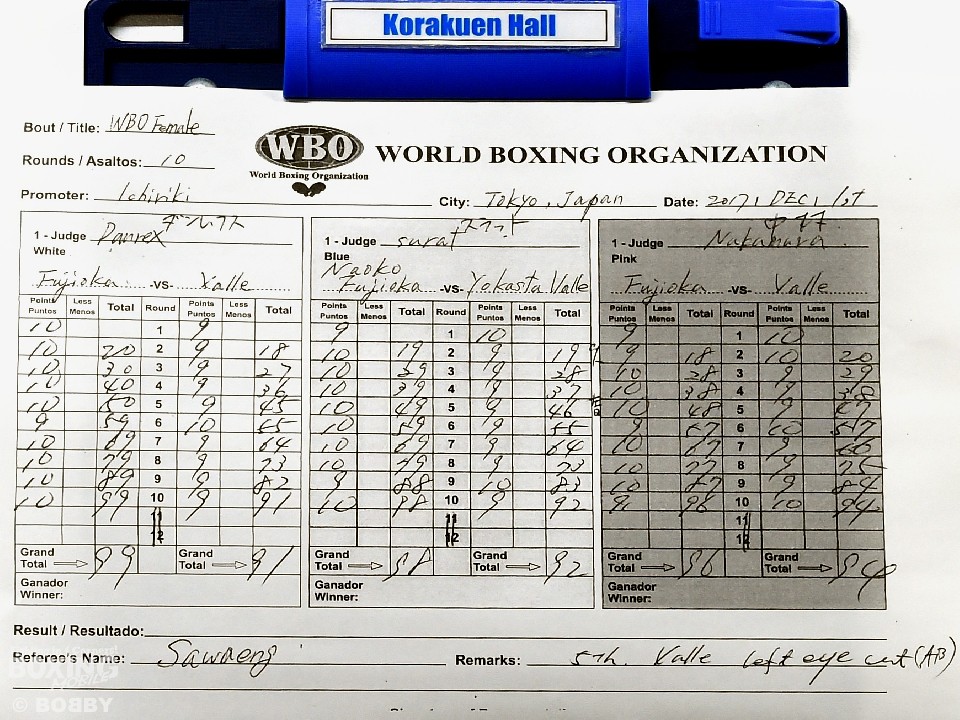 Korakuen Hall
Bout / Title: WBO Female
Rounds / Asaltos: 10
WBO
World Boxing Organization
WORLD BOXING ORGANIZATION
Promoter: Ichiriki City: Tokyo, Japan Date: 2017, DEC, 1st
1 - Judge Panrex
White
Fujioka -vs- Valle
Points Puntos Less Menos Total Round Points Puntos Less Menos Total
10 1 9
10 20 2 9 18
10 30 3 9 27
10 40 4 9 36
10 50 5 9 45
9 59 6 10 55
10 69 7 9 64
10 79 8 9 73
10 89 9 9 82
10 99 10 9 91
11
12
Grand Total 99 Grand Total 91
Ganador
Winner:
スラット
1 - Judge surat
Blue
Naoko
Fujioka -vs- Yokasta Valle
Points Puntos Less Menos Total Round Points Puntos Less Menos Total
9 1 10
10 19 2 9 19
10 29 3 9 28
10 39 4 9 37
10 49 5 9 46
10 59 6 9 55
10 69 7 9 64
10 79 8 9 73
9 88 9 10 83
10 98 10 9 92
11
12
Grand Total 98 Grand Total 92
Ganador
Winner:
1 - Judge Nakamura
Pink
Fujioka -vs- Valle
Points Puntos Less Menos Total Round Points Puntos Less Menos Total
9 1 10
9 18 2 10 20
10 28 3 9 29
10 38 4 9 38
10 48 5 9 47
9 57 6 10 57
10 67 7 9 66
10 77 8 9 75
10 87 9 9 84
9 96 10 10 94
11
12
Grand Total 96 Grand Total 94
Ganador
Winner:
Result / Resultado:
Referee's Name: Sawaeng Remarks: 5th. Valle left eye cut (AB)
BOXING
© BOBBY